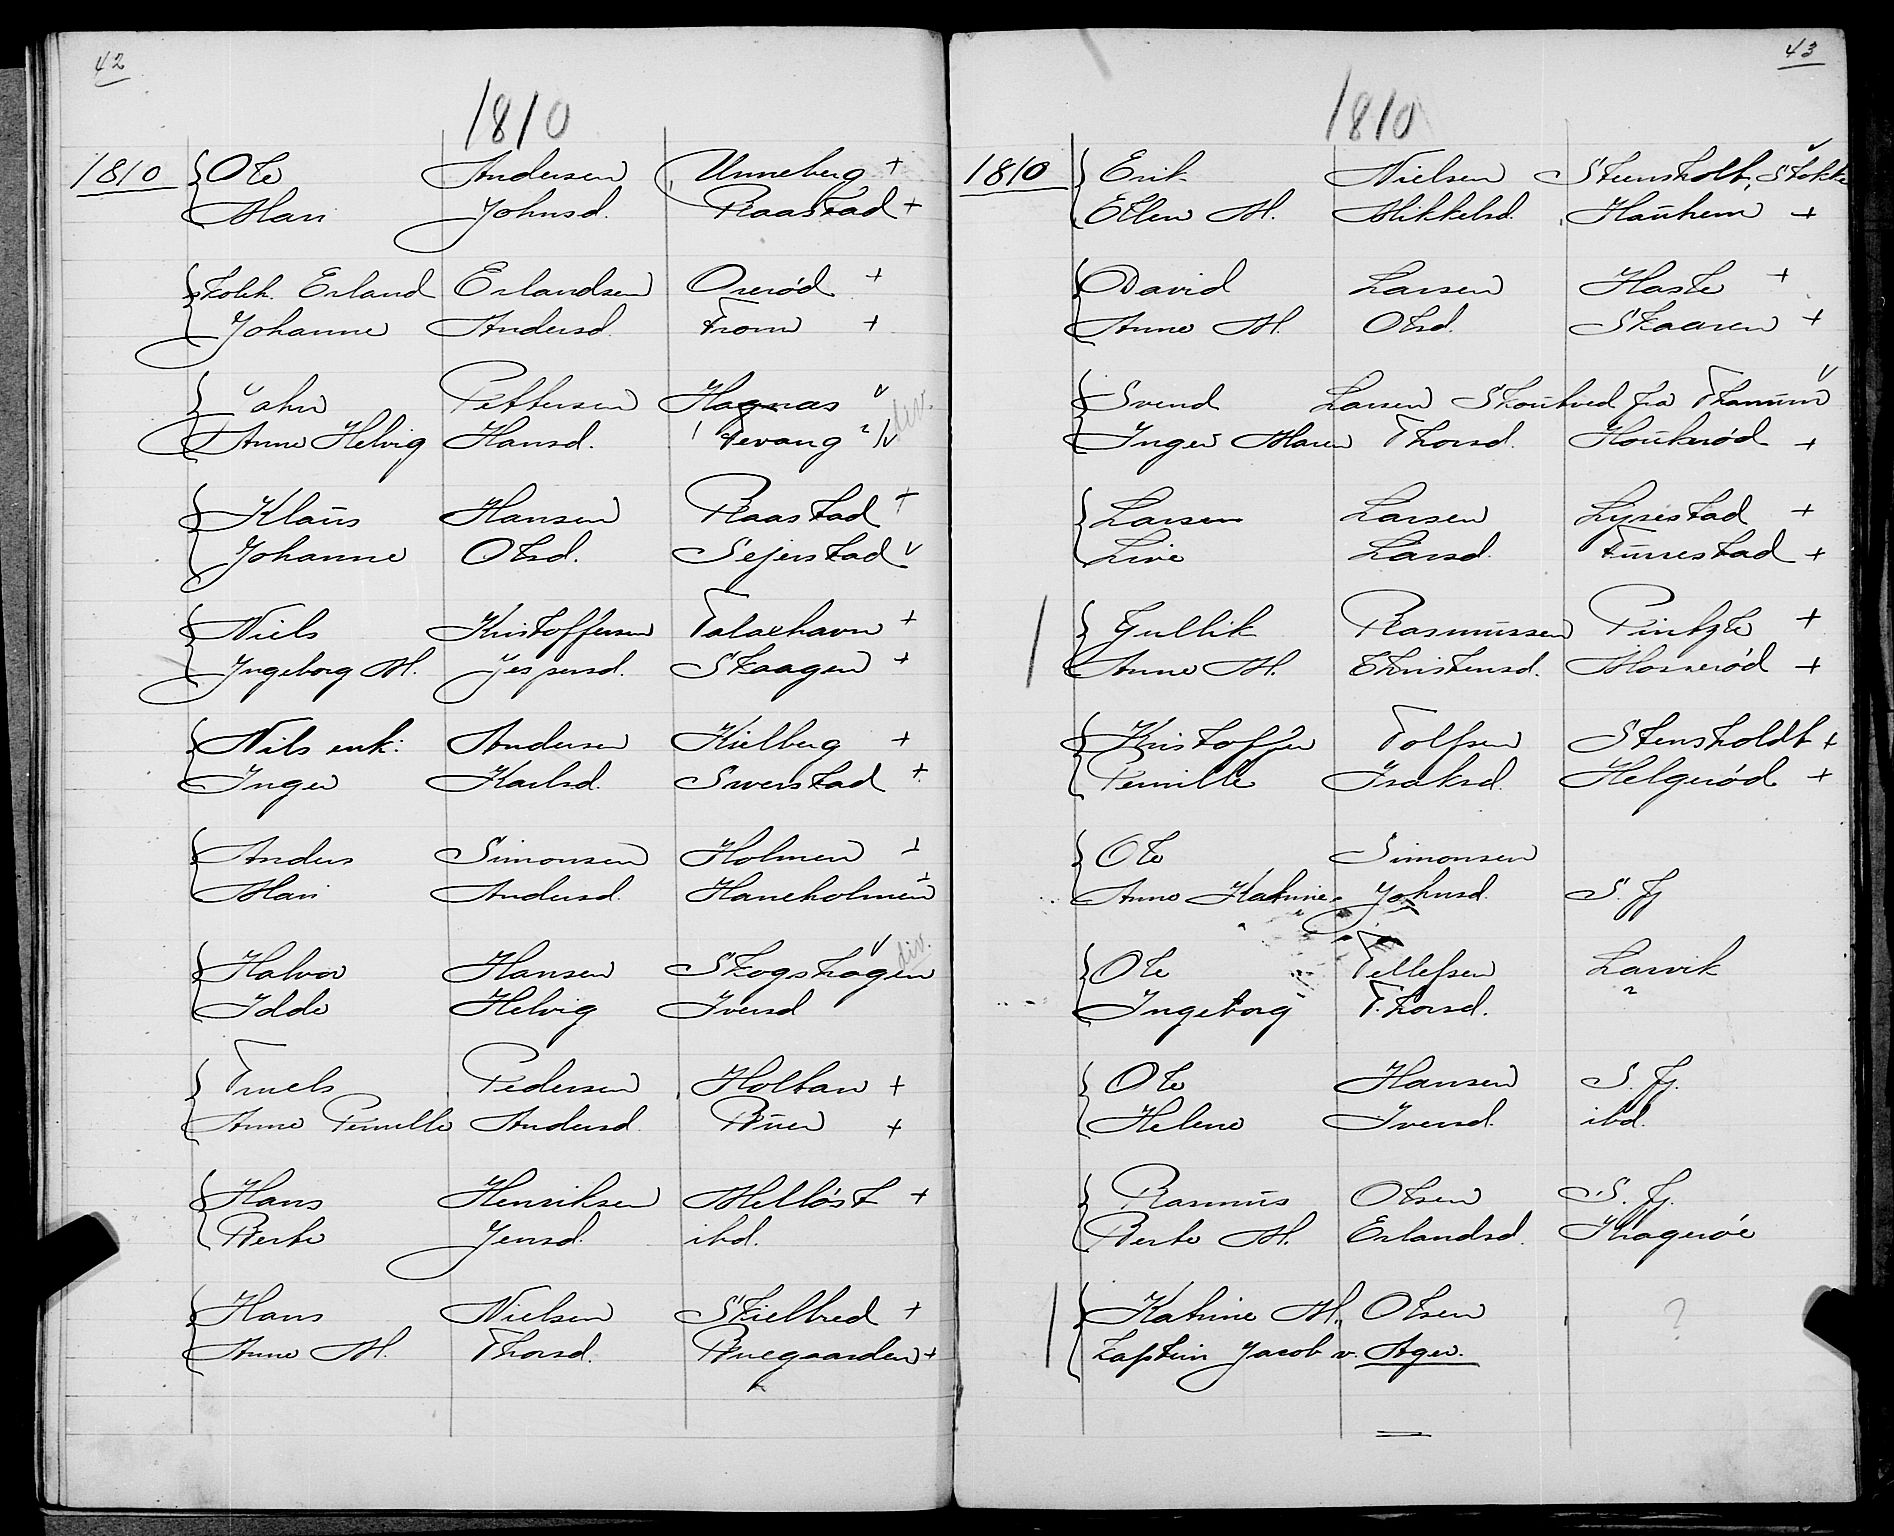 42
1810
1810 Ole Andersen Unneberg +
Mari Johnsd. Raastad +
Erland Erlandsen Orerød +
Johanne Andersd. From +
Pettersen Hagnas v
Anne Helvig Hansd. Tevang div.
Klaus Hansen Raastad +
Johanne Olsd. Sejerstad v
Niels Kristoffersen Valaehavn +
Ingeborg M. Jespersd. Skaagen +
Nils enk: Andersen Kielberg +
Inger Karlsd. Swerstad +
Anders Simonsen Holmen +
Mari Andersd. Haneholmen +
Halvor Hansen Skogshagen v div.
Idde Helvig Iversd
Truels Pedersen Holtan +
Anne Pernille Andersd. Buer +
Hans Henriksen Melløst +
Berte Jensd. ibd.
Hans Nielsen Skielbred +
Anne M. Thorsd. Ruegaarden +
43
1810
1810 Erik Nielsen Steensholt, Stokke v
Ellen M. Mikkelsd. Haukem +
David Larsen Hasle +
Anne M. Olsd. Skaaren +
Svend Larsen fra Thanum v
Inger Maren Thorsd. Houkerød +
Larsen Larsen Lyrestad +
Live Larsd. Furrestad +
Gullik Rasmussen Pintzle +
Anne M. Christensd. Moserød +
Kristoffer Tolfsen Stensholdt +
Pernille Isaksd. Helgerød +
Ole Simonsen
Anne Katrine Johnsd. S. Fj
Ole Tellefsen Larvik
Ingeborg Thorsd. "
Ole Hansen S. Fj.
Helene Iversd. ibd.
Rasmus Olsen S. Fj.
Berte M. Erlandsd. Kragerøe
Katrine M. Olsen ?
Kaptein Jacob v. Ager.